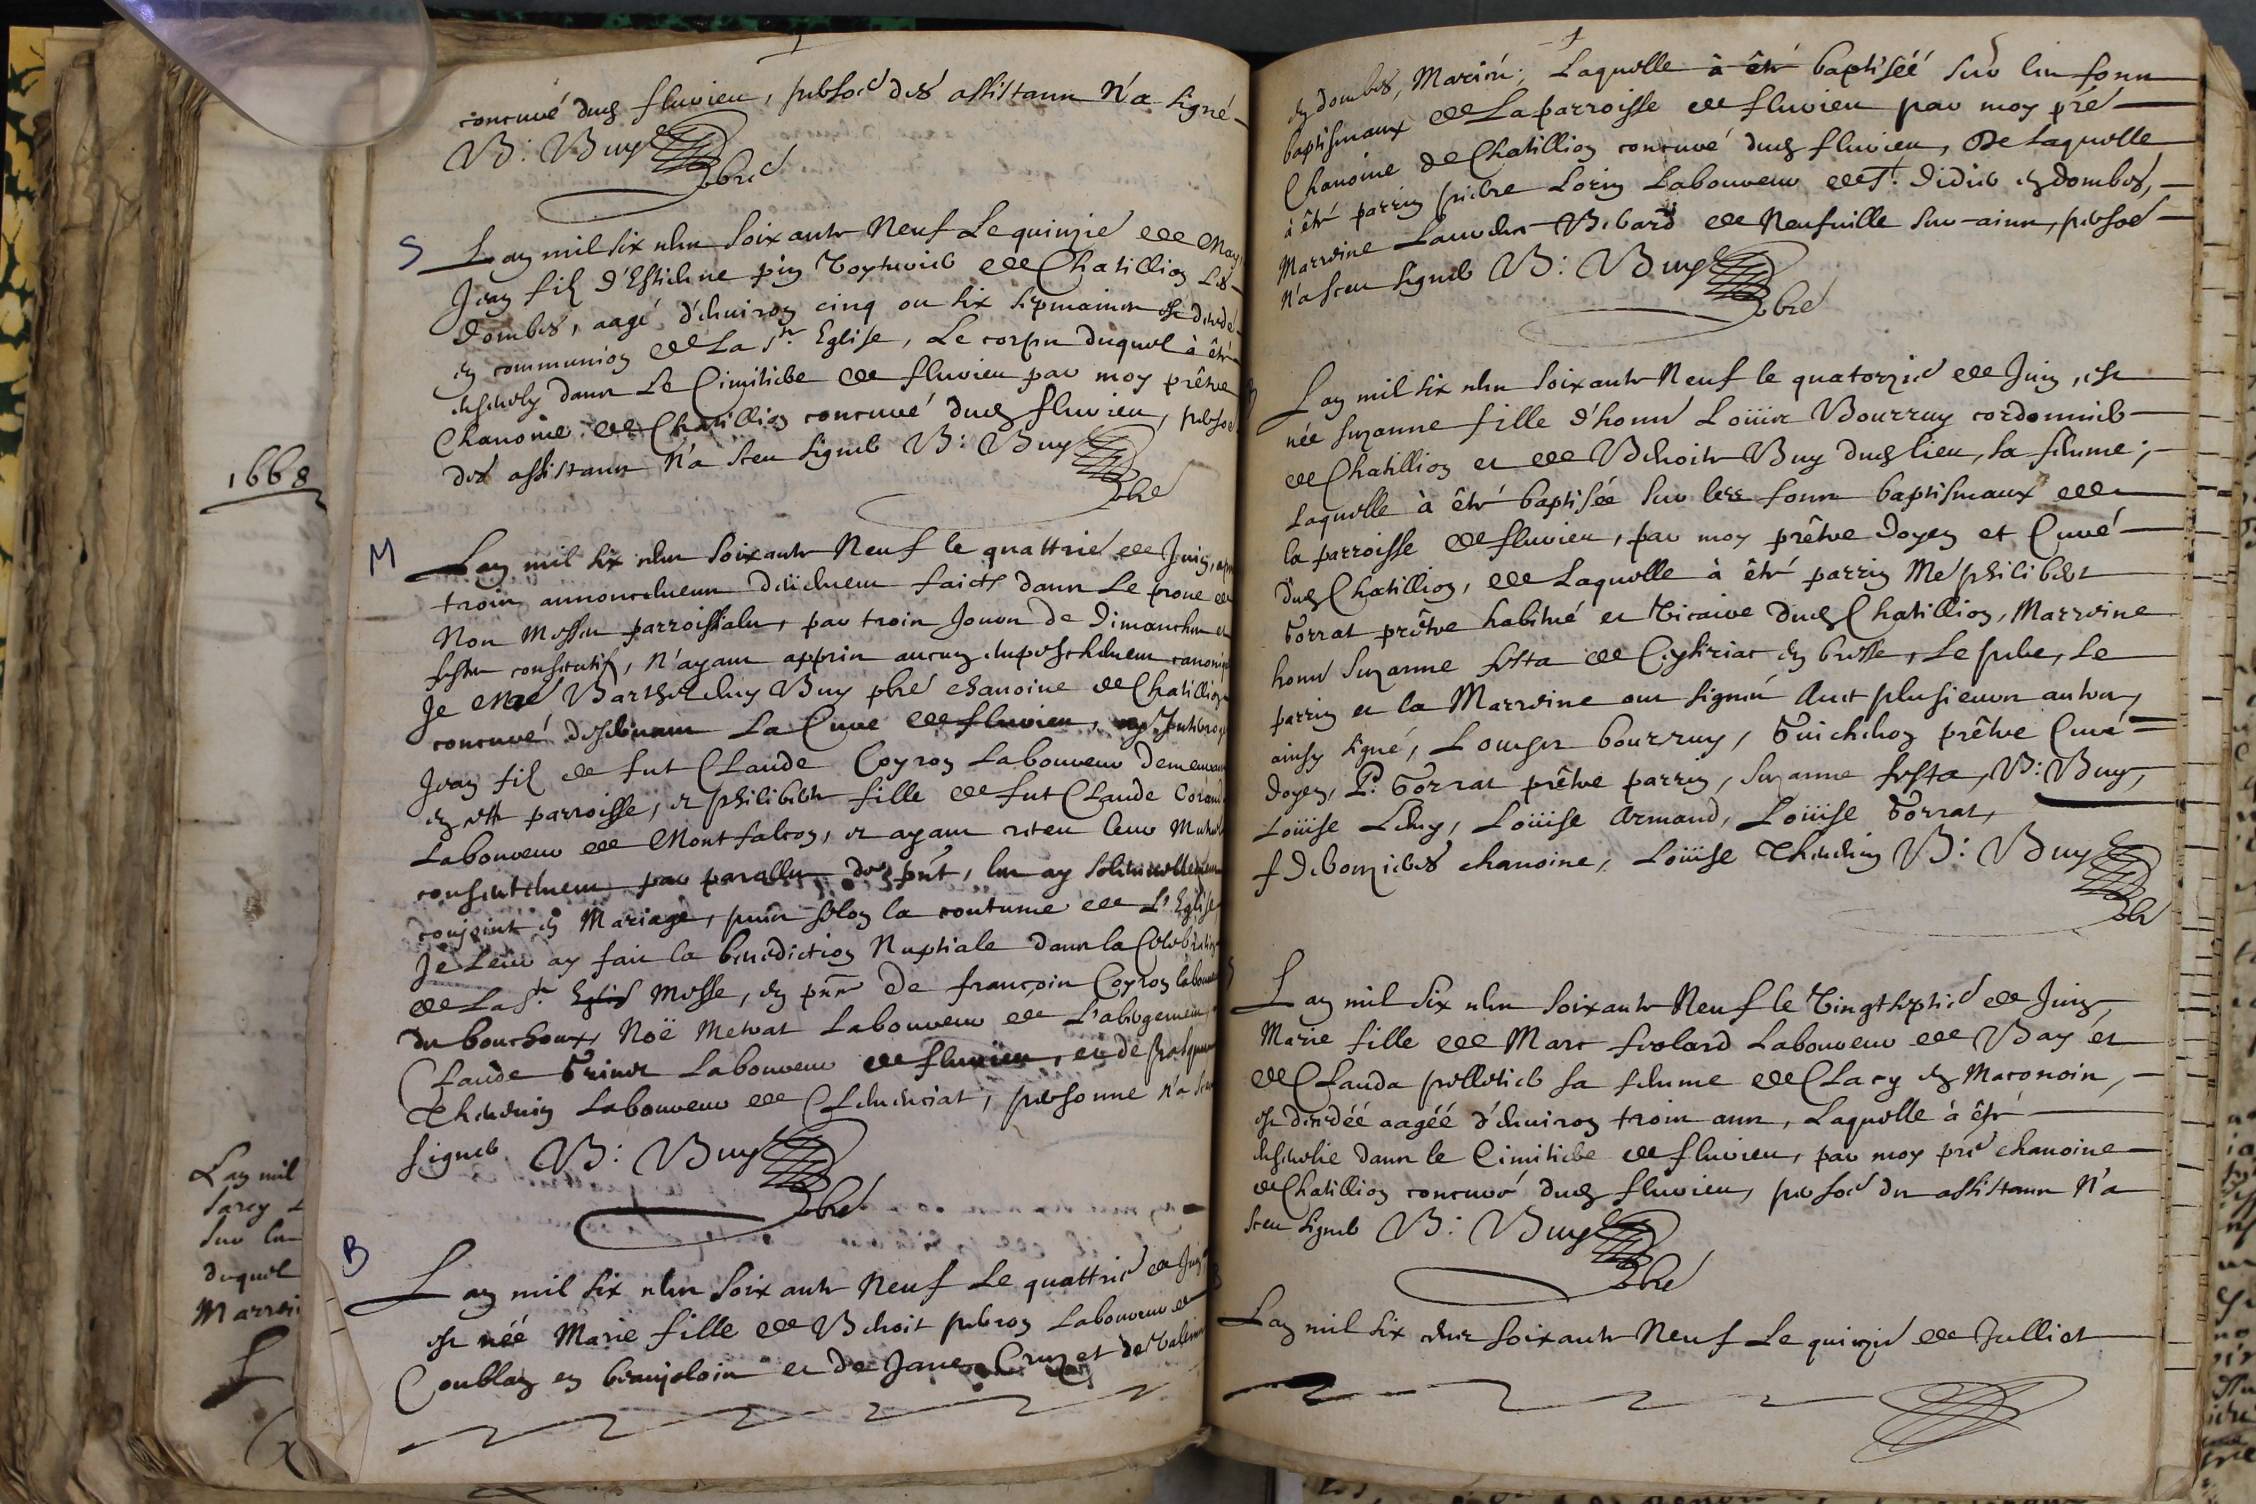 concuré dudt fluvieu, persoe des assistans N'a signé
B: Buy pbre
S
L'an mil six cens soixante Neuf Le quinzie de May
Jean filz d'Estiene pin de Chatillion Les
dombes, aagé d'environ cinq ou six sepmaines est decedé
en communion de La Ste Eglise, Le corps duquel à êtré
ensevely dans Le Cimitiere de fluvieu par moy prêtre
Chanoine de Chatillion concuré dudt fluvieu, persoe
des assistans N'a sceu signer B: Buy
pbre
1668
M
L'an mil six cens soixante Neuf le quattrie de Juin, apres
trois annoncemens deüement faicts dans Le prone de
Nos Messes parroissiales, par trois Jours de Dimanches et
festes consecutifs, N'ayant appris aucun empeschement canonique
Je Mre Barthelemy Buy pbre chanoine de Chatillion
concuré desservant La Cure de fluvieu, ay Interrogé
Jean filz de fut Claude Coyron Laboureur demeurant
en cette parroisse, et philiberte fille de fut Claude
Laboureur de Montfalcon, et ayant receu leur Mutuel
consentement par paralles de pnt, les ay solemnellement
conjoint en Mariage, puis selon la coutume de L'Eglise
Je Leur ay fait la benediction Nuptiale dans la Celebration
de La Ste Eglis Messe, en pnce de françois Coyron laboureur
du bouchoux, Noë Metrat Laboureur de L'abergement,
Claude Laboureur de fluvieu, et de
Thevenin Laboureur de Clemenciat, personne N'a sceu
signer B: Buy
pbre
B
L'an mil six cens soixante Neuf Le quattrie de Juin
est née Marie fille de Benoit perron Laboureur de
Coublan en beaujolois et de Jane Cruzet de
L'an mil
Sur les
duquel
Marrei
en dombes, Mariés; Laquelle à êtré baptiséé sur les fons
baptismaux de La parroisse de fluvieu par moy pre
Chanoine de Chatillion concuré dudt fluvieu, De Laquelle
à êtré parrin pierre Lorin Laboureur de St. Didier en dombes,
Marreine Laurence Bibard de Neufville sur-ains, persoe
N'a sceu signer B: Buy
pbre
L'an mil six cens soixante Neuf le quatorzie de Juin, est
née Suzanne fille d'honne Loüis Bourruy cordonnier
de Chatillion et de Benoite Buy dudt lieu, sa femme;
Laquelle à êtré baptisée sur les fons baptismaux de
la parroisse de fluvieu, par moy prêtre Doyen et Curé
dudt Chatillion, de Laquelle à êtré parrin Mre philibert
Gorrat prêtre habitué et Vicaire dudt Chatillion, Marreine
honne Suzanne festa de Ceyseriat en bresse, Le pere, Le
parrin et la Marreine ont signés Avec plusieurs autres,
ainsy signé, Louys bourruy, Guichenon prêtre Curé
Doyen, P: Gorrat prêtre parrin, Suzanne festa, B: Buy,
Loüise Lemy, Loüise Armand, Loüise Gorrat,
f Debourieres chanoine, Loüise Thevenin B: Buy
pbre
L'an mil six cens soixante Neuf le Vingtseptie de Juin,
Marie fille de Marc frelard Laboureur de Bay et
de Clauda pelletier sa femme de Clacy en Maconois,
est decedéé aagéé d'environ trois ans, Laquelle à êtré
ensevelie dans le Cimitiere de fluvieu, par moy pre chanoine
de Chatillion concuré dudt fluvieu, persoe des assistans N'a
sceu signer B: Buy
pbre
L'an mil six cens soixante Neuf Le quinzie de Julliet